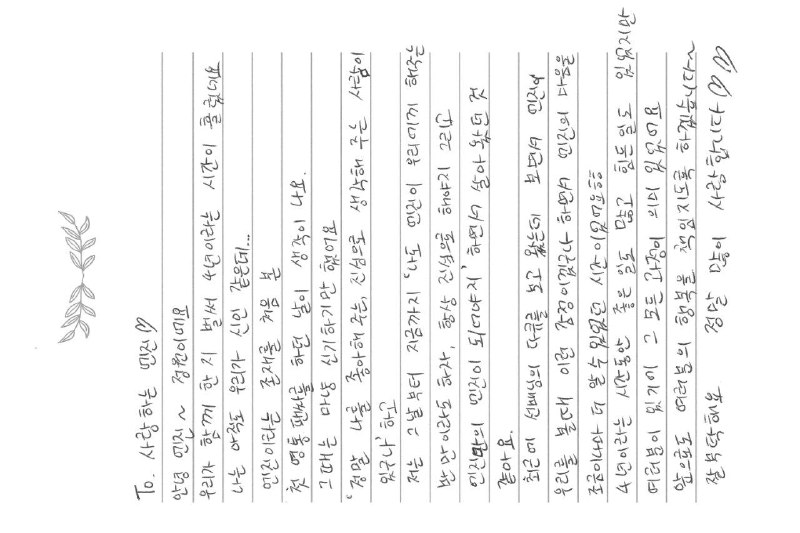 To. 사랑하는 엔진♡
안녕 엔진~ 정원이에요
우리가 함께 한 지 벌써 4년이라는 시간이 흘렀네요
나는 아직도 우리가 신인 같은데...
엔진이라는 존재를 처음 본
첫 영통팬싸를 하던 날이 생각이 나요.
그때는 마냥 신기하기만 했어요
'정말 나를 좋아해 주는, 진심으로 생각해 주는 사람이
있구나' 하고
저는 그날부터 지금까지 '나도 엔진이 우리에게 해주는
반만이라도 하자, 항상 진심으로 해야지 그리고
엔진만의 엔진이 되어야지' 하면서 살아 왔던 것
같아요.
최근에 선배님의 다큐를 보고 왔는데 보면서 엔진이
우리를 볼때 이런 감정이겠구나 하면서 엔진의 마음을
조금이나마 더 알 수 있었던 시간이었어요ㅎㅎ
4년이라는 시간동안 좋은 일도 많고 힘든 일도 있었지만
여러분이 있기에 그 모든 과정이 의미 있었어요
앞으로도 여러분의 행복을 책임지도록 하겠습니다~
잘 부탁해요 정말 많이 사랑합니다♡♡